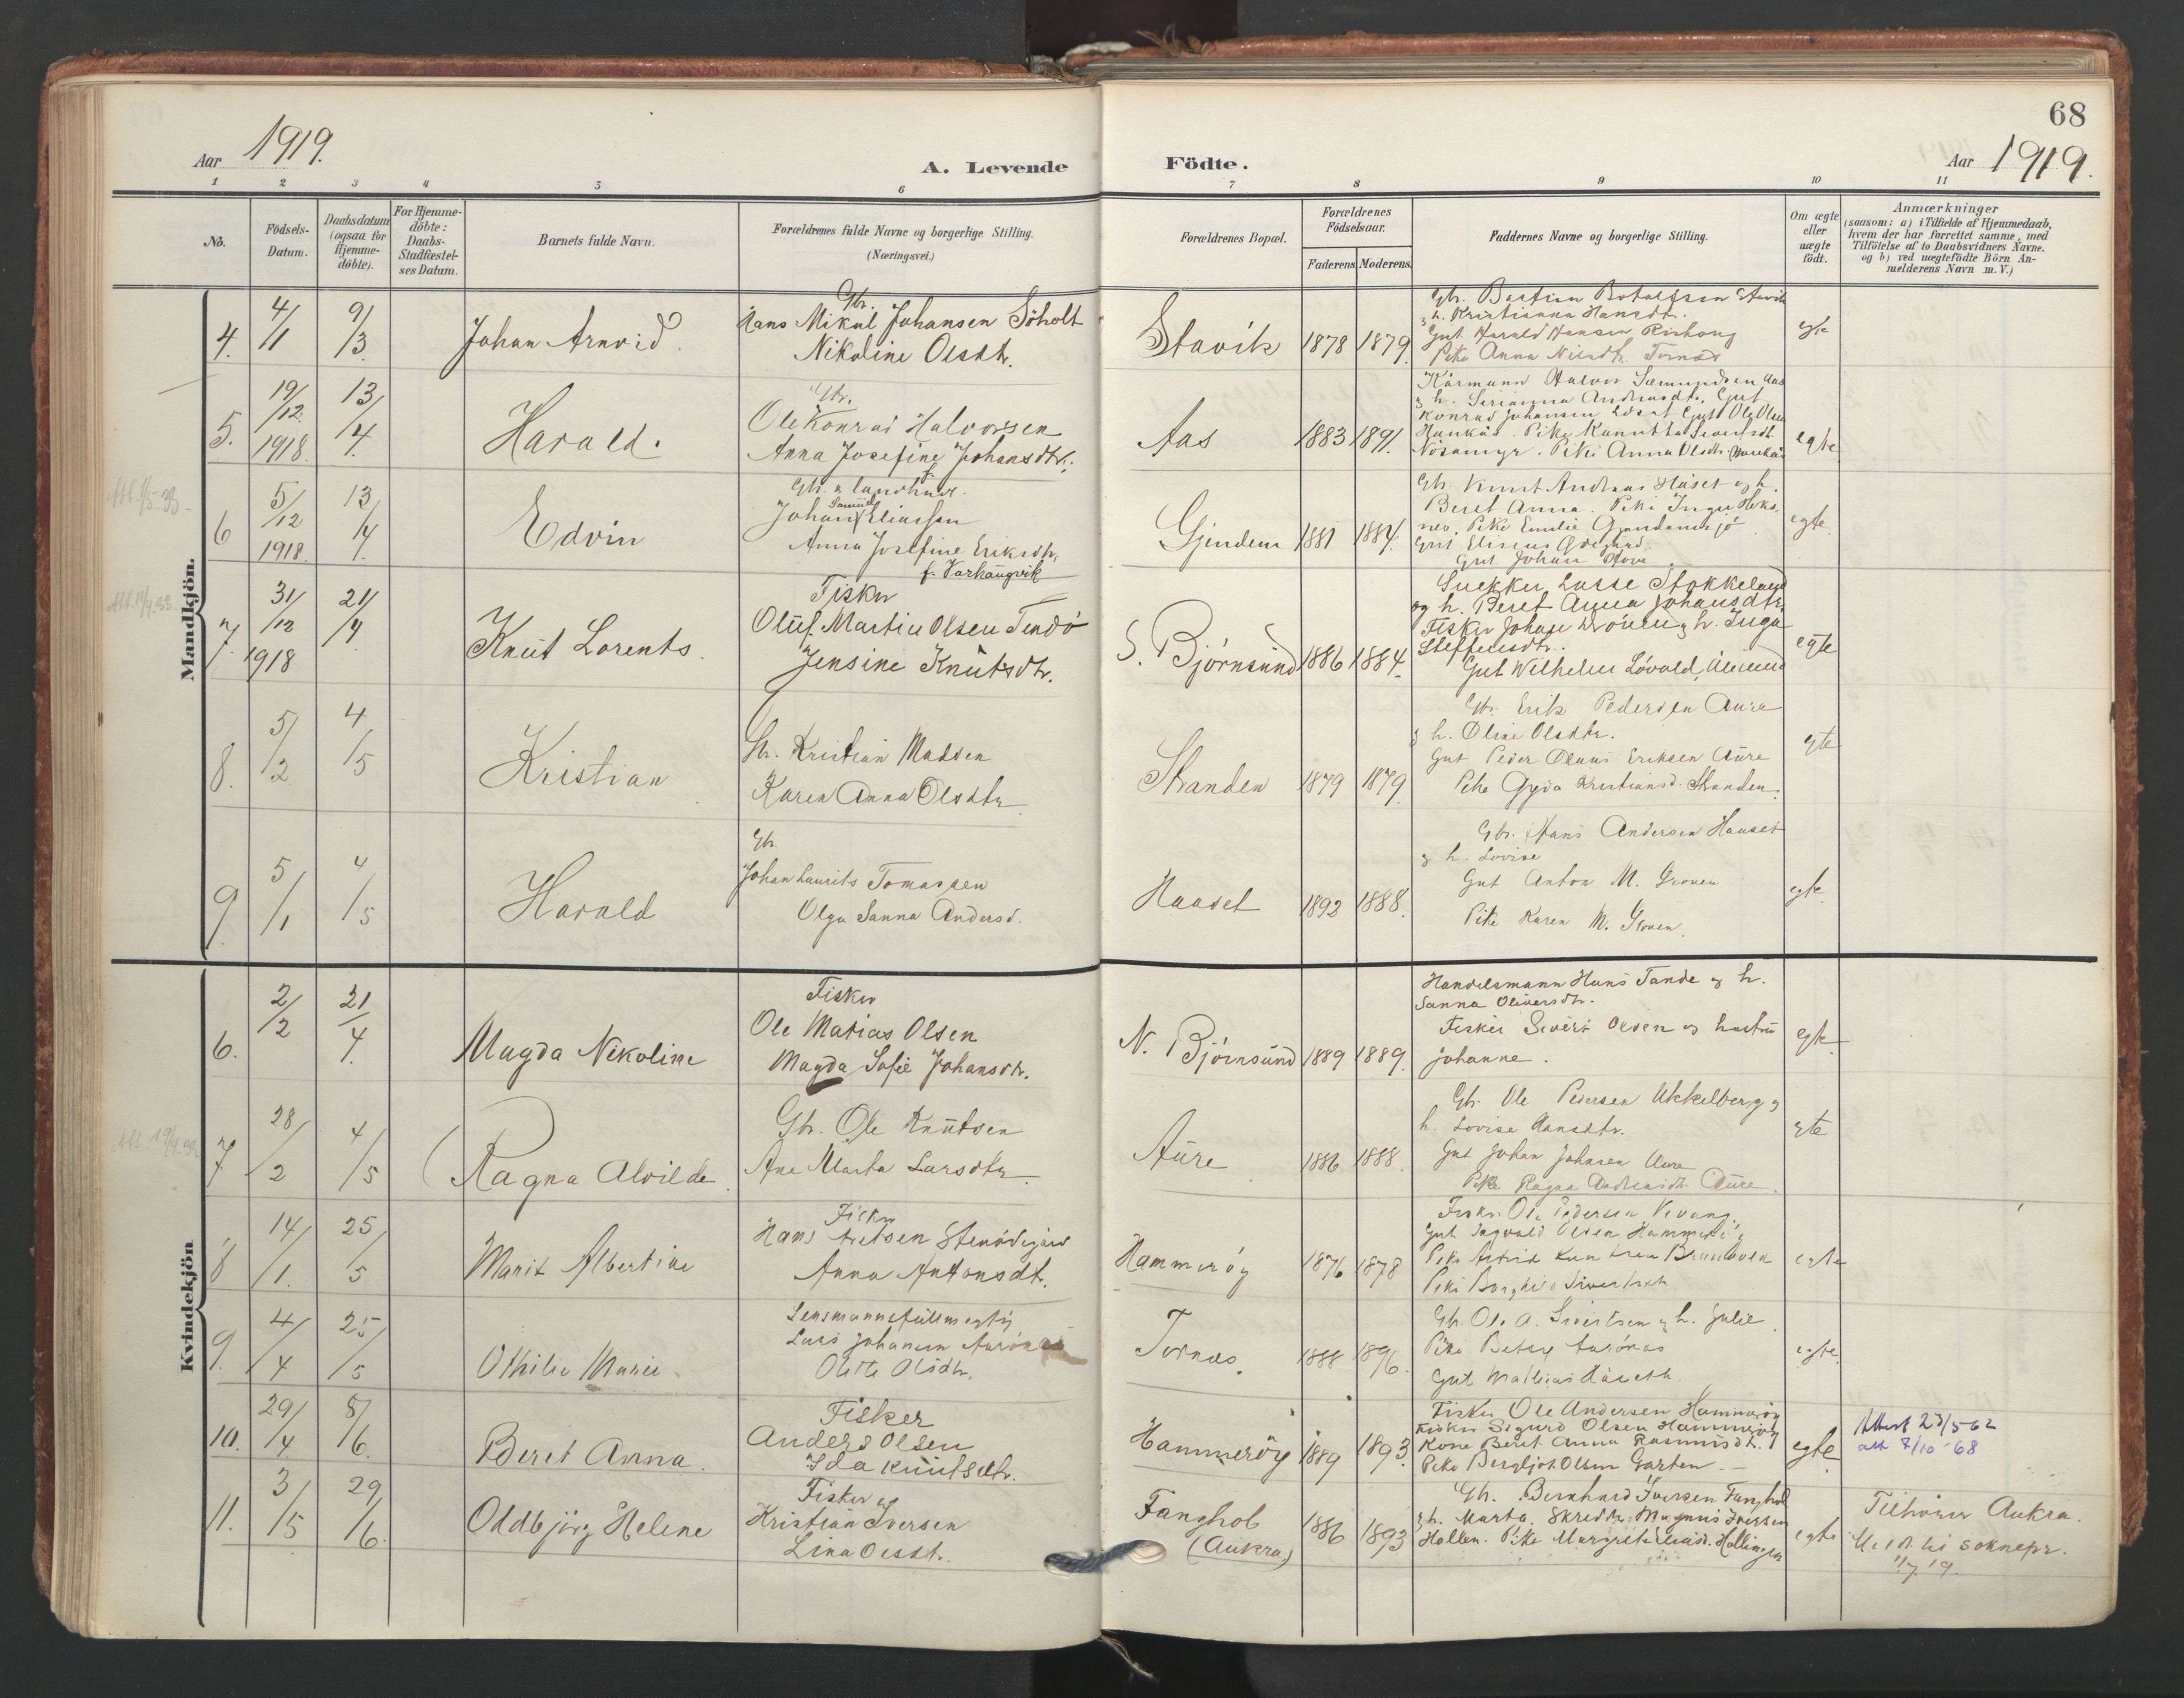 68
Aar 1919.
A. Levende
Födte.
Aar 1919.
1 2 3 4 5 6 7 8 9 10 11
No.
Födsels-
Datum.
Daabsdatum
(ogsaa for
Hjemme-
döbte).
For Hjemme-
döbte:
Daabs-
Stadfæstel-
ses Datum.
Barnets fulde Navn.
Forældrenes fulde Navne og borgerlige Stilling.
(Næringsvei.)
Forældrenes Bopæl.
Forældrenes
Födselsaar.
Faderens Moderens
Faddernes Navne og borgerlige Stilling.
Om ægte
eller
uægte
födt.
Anmærkninger
(saasom: a) i Tilfælde af Hjemmedaab,
hvem der har forrettet samme, med
Tilföielse af to Daabsvidners Navne,
og b) ved uægtefödte Börn An-
melderens Navn m. V.)
Mandkjön.
4.
4/1
9/3
Johan Arnvid.
Gbr.
Hans Mikal Johansen Söholt
Nikoline Olsdtr.
Stavik
1878
1879.
Gbr. Bastian Botolfsen Stavik
og h. Kristianna Hansdt.
Gut Harald Hansen
Pike Anna Nilsdtr. Tornes
egte
5.
19/12
1918.
13/4.
Harald.
Gbr.
Ole Konrad Halvorsen
Anna Josefine Johansdtr.
Aas
1883
1891.
Kårmann Halvor Sæmundsen Aas
og h. Serianna Andreasdtr. Gut
Konrad Johansen Gut Ole Olsen
Haukås. Pike
Pike Anna Olsdtr. Haukås
egte
6
5/12
1918
13/4.
Edvin
Gbr. & landhandl.
Johan Samuel Eliassen
Anna Josefine Eriksdtr.
f. Varhaugvik
Gjendem
1881
1884.
Gbr. Knut Andreas Haset og h.
Beret Anna. Pike Inga
Pike Emilie Gjendemsjö
Gut Johan
egte
7.
31/12
1918
21/4.
Knut Lorents.
Fisker
Oluf Martin Olsen Tendö
Jensine Knutsdtr.
S. Björnsund
1886
1884.
Snekker Lasse Stokkeland
og h. Beret Anna Johansdtr.
Fisker Johan og h. Inga
Steffensdtr.
Gut Wilhelm Lövold, Ålesund
egte
8.
5/2
4/5
Kristian
Gbr. Kristian Madsen
Karen Anna Olsdtr.
Stranden
1879
1879.
Gbr. Erik Pedersen Aure
og h. Oline Olsdtr.
Gut Peder Olaus Eriksen Aure
Pike Gyda Kristiansd. Stranden.
egte
9.
5/1
4/5
Harald
Gbr.
Johan Laurits Tomassen
Olga Sanna Andersd.
Haaset
1892
1888.
Gbr. Hans Andersen Hauset
og h. Lovise
Gut Anton M. Groven
Pike Karen M. Groven.
egte.
Kvindekjön
6.
2/2
21/4.
Magda Nikoline
Fisker
Ole Matias Olsen
Magda Sofie Johansdtr.
N. Björnsund
1889
1889.
Handelsmann Hans Tande og h.
Sanna Oliversdtr.
Fisker Sivert Olsen og hustru
Johanne.
egte
7
28/2
4/5
Ragna Alvilde.
Gbr. Ole Knutsen
Ane Marta Larsdtr.
Aure
1886
1888.
Gbr. Ole Pedersen Ukkelberg og
h. Lovise Hansdtr.
Gut Johan Johnsen Aure
Pike Ragna Andreasdtr. Aure.
egte
8
14/1.
25/5
Marit Albertine
Fisker
Hans Stenödegård
Anna Antonsdt.
Hammeröy
1876
1878
Fisker Ole Pedersen Vevang.
Gut Ingvald Olsen Hammeröy
Pike Astrid
Pike Borghild Sivertsdt.
egte
9.
4/4
25/5
Othilie Marie.
Lensmannsfullmegtig
Lars Johansen Aurönes
Olsdtr.
Tornes.
1888
1896.
Gbr. Ole A. Sivertsen og h. Julie.
Pike Betsy Aurönes
Gut Mathias
egte.
10.
29/4
8/6.
Beret Anna.
Fisker
Anders Olsen
Ida Knutsdtr.
Hammeröy
1889
1893.
Fisker Ole Andersen Hammeröy
Fisker Sigurd Olsen Hammeröy
Kone Beret Anna Rasmusdt.
Pike Bergljot Olsen Garten.
egte
Attest 23/5-62
att 8/10-68
11.
3/5
29/6.
Oddbjörg Helene
Fisker
Kristian Iversen
Lina Olsdt.
Fanghol
(Aukra)
1886
1893
Gbr. Bernhard Iversen Fanghol
og h. Marta. Skredder Magnus Iversen
Hollen. Pike Margrete
egte
Tilhörer Aukra.
til soknepr.
11/7 19.